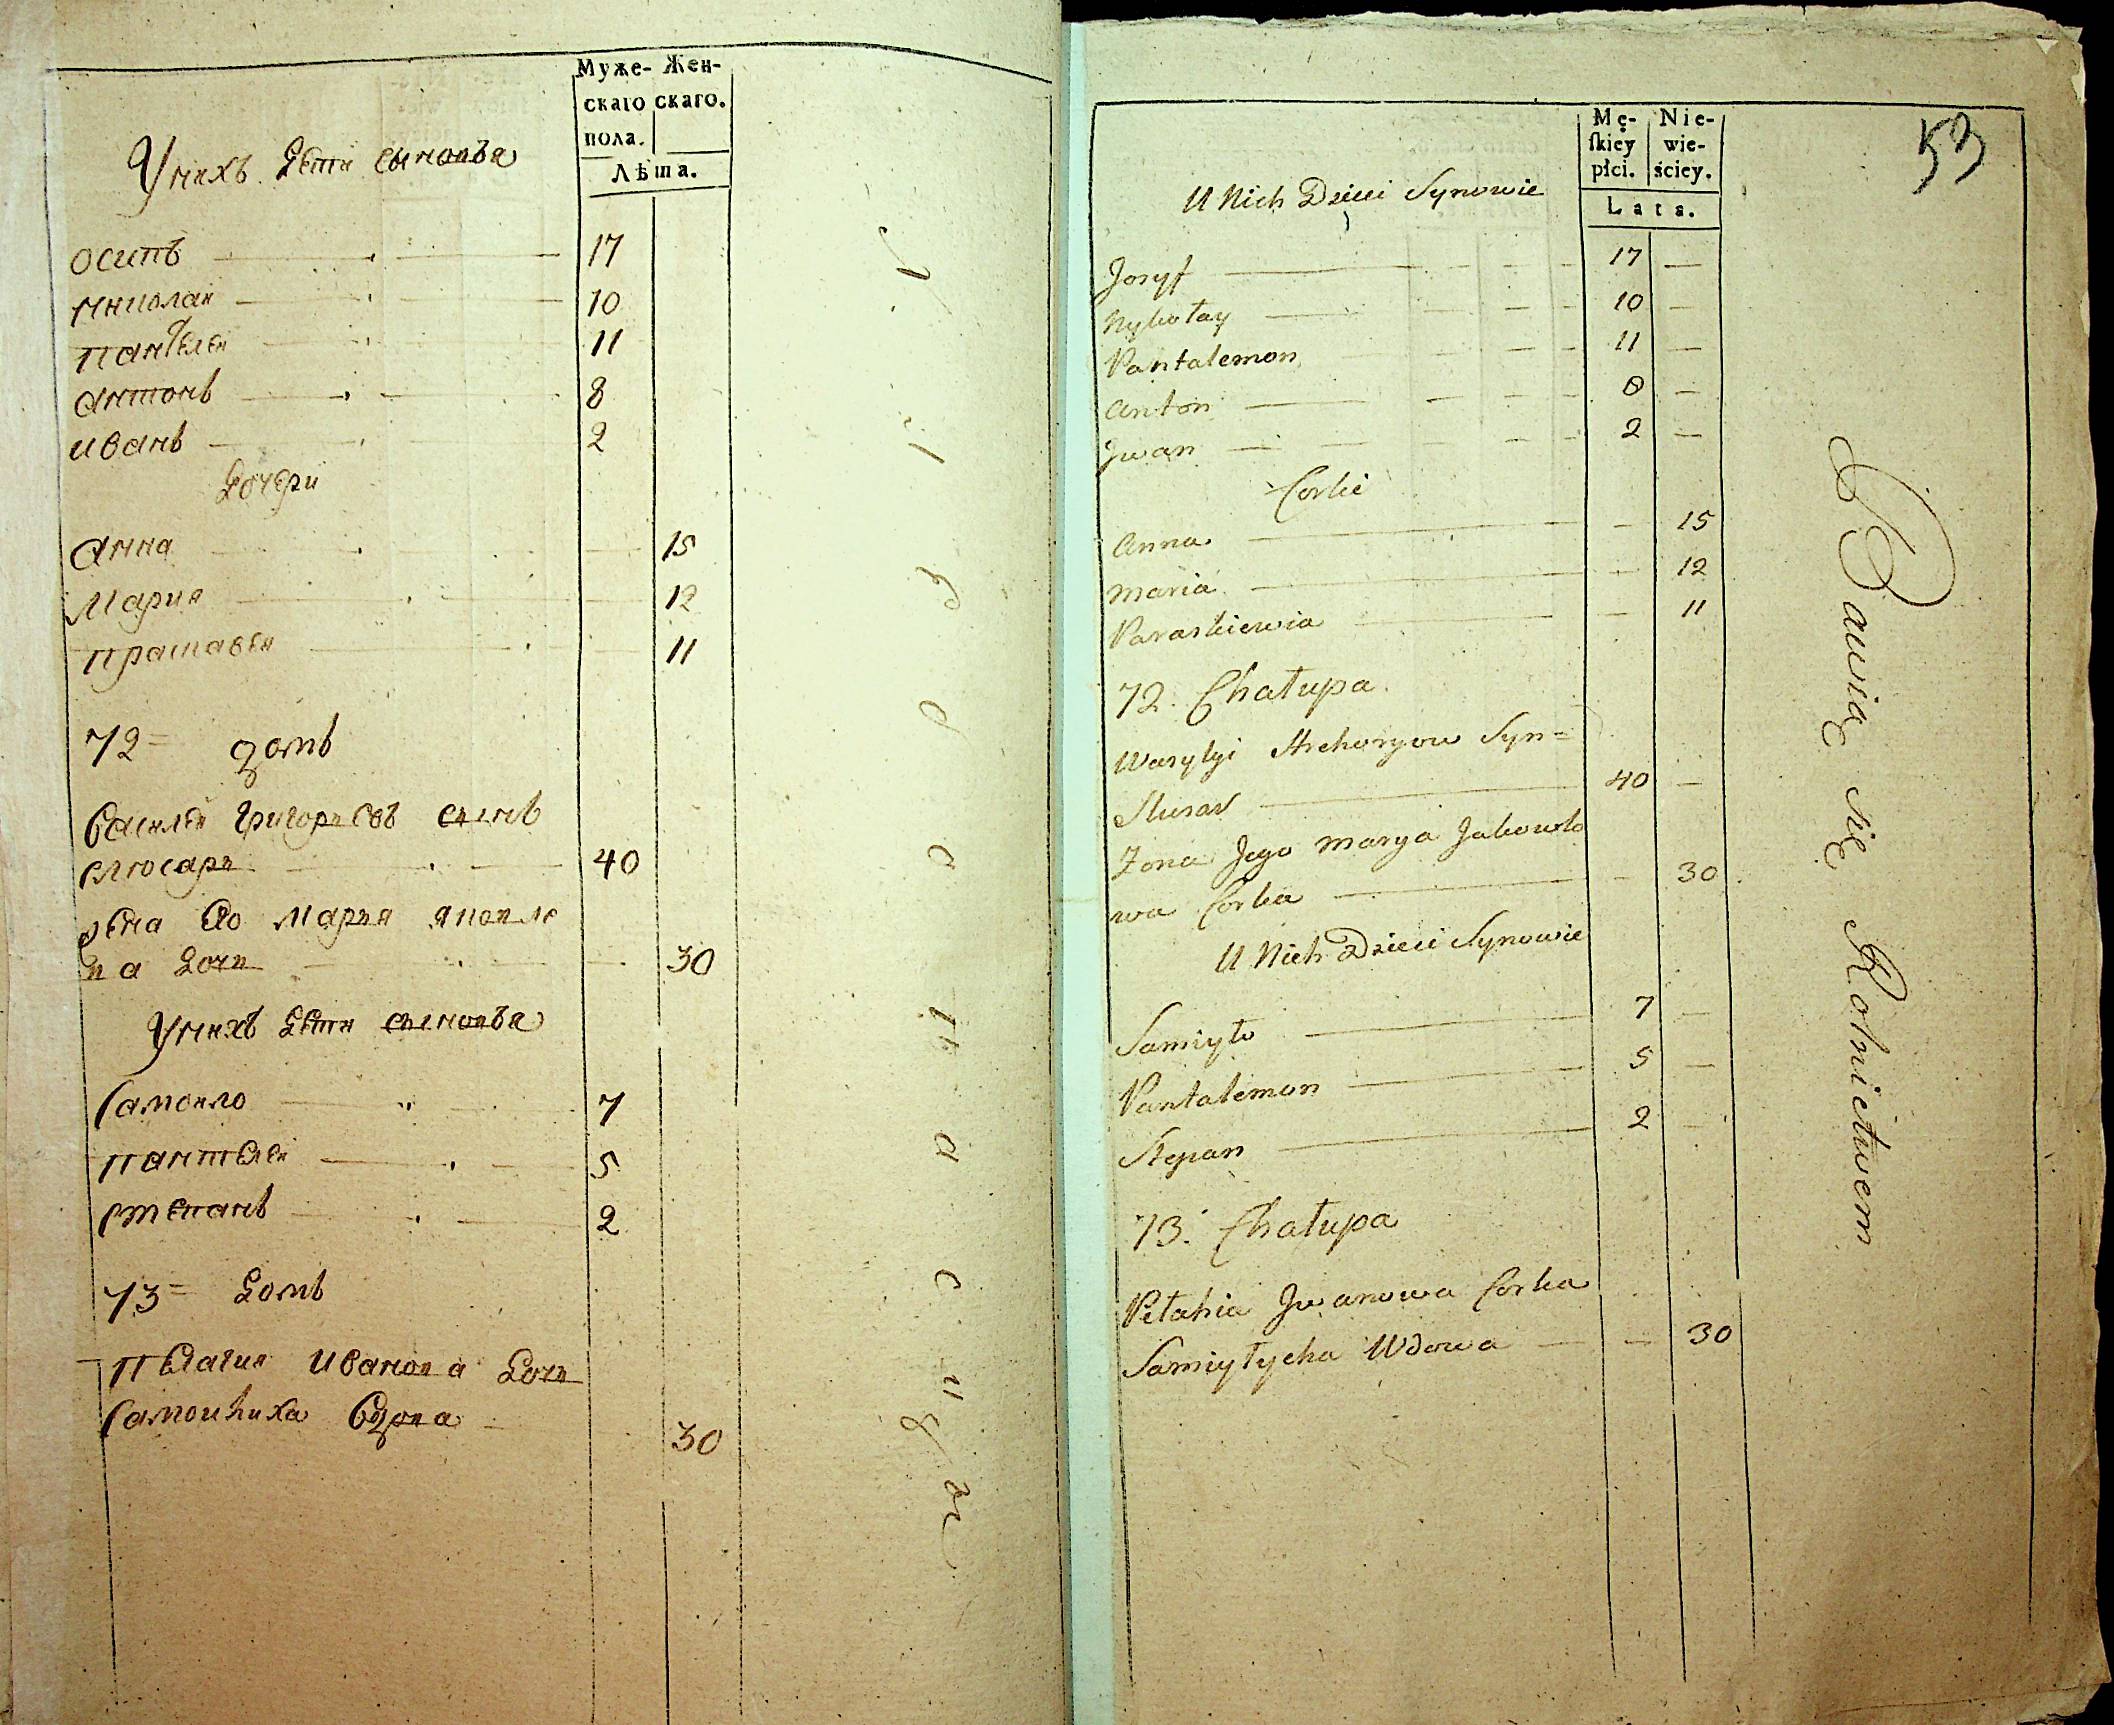 Муже- Жен-
скаго скаго.
пола.
Лѣта.
У нихъ Дети сыновья
Осипъ 17
Николай 10
Пантелей 11
Антонъ 8
Иванъ 2
Дочери
Анна 15
Мария 12
Прасковея 11
72 = Домъ
Василей Григорьевъ сынъ
Слюсарь 40
жена Его Марья Яковле
ва Дочь 30
У нихъ Дети сыновья
Самойло 7
Пантелей 5
Степанъ 2
73 = Домъ
Пелагия Иванова Дочь
Самойлиха Вдова 30
53
Mę- Nie-
skiey wie-
płci. ściey.
Lata.
U Nich Dzieci Synowie
Josyf 17
Nykołay 10
Pantalemon 11
Anton 8
Jwan 2
Corki
Anna 15
Maria 12
Paraskiewia 11
72. Chałupa
Wasylyi Hrehoryow Syn =
Slusar 40
Zona Jego Marya Jakowlo
wa Corka 30
U Nich Dzieci Synowie
Samiyło 7
Pantalemon 5
Stepan 2
73. Chałupa
Pełahia Jwanowa Corka
Samiyłycha Wdowa 30
Bawią się Rolnictwem